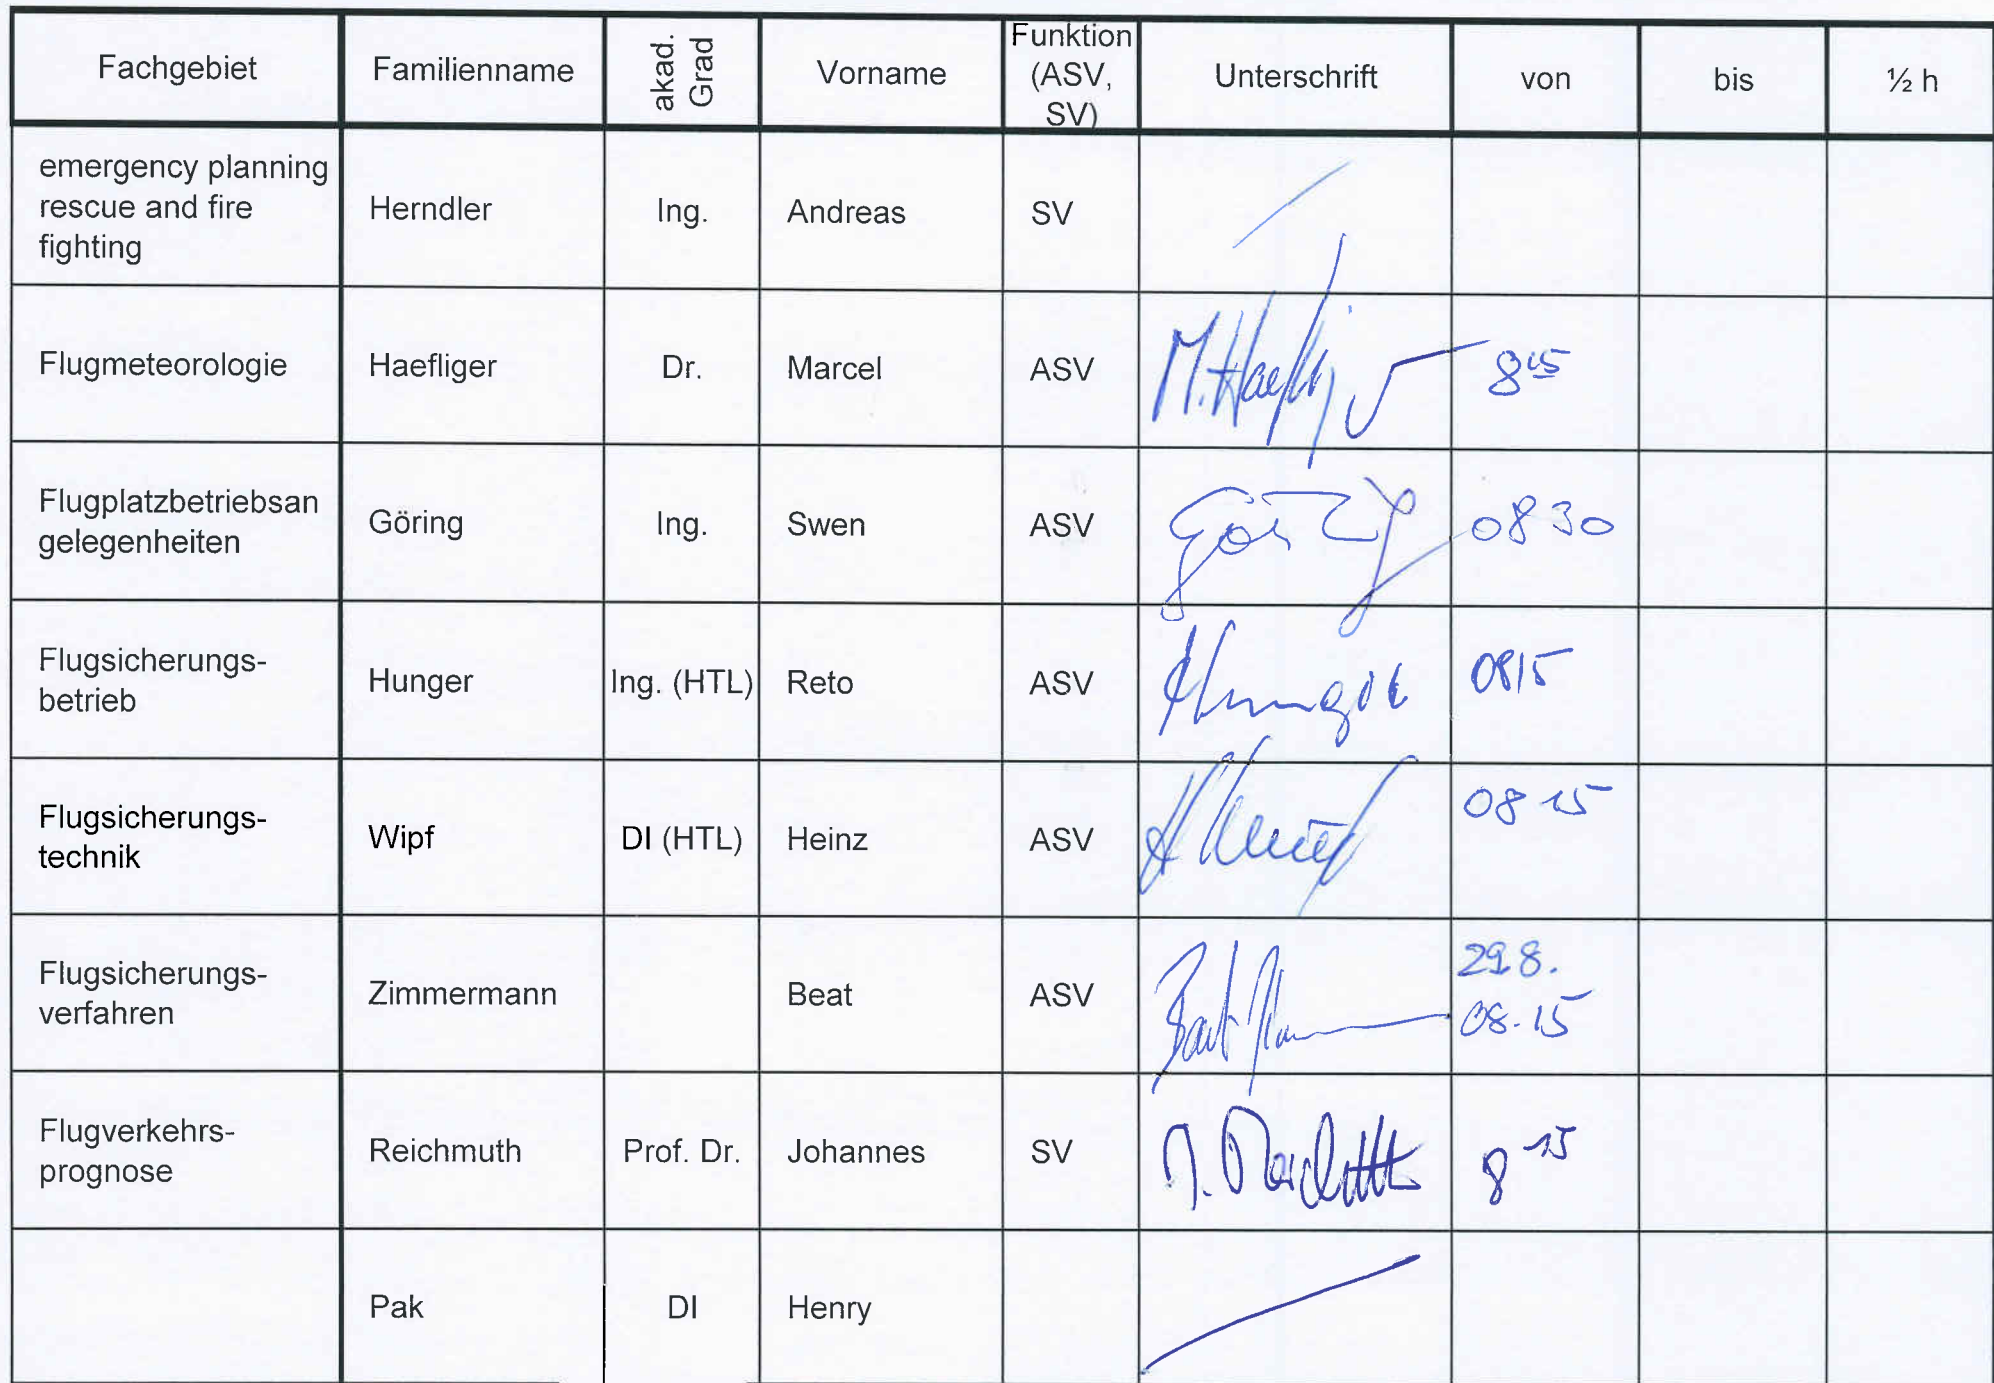 Fachgebiet Familienname akad. Grad Vorname Funktion (ASV, SV) Unterschrift von bis ½ h
emergency planning
rescue and fire
fighting
Herndler Ing. Andreas SV
Flugmeteorologie Haefliger Dr. Marcel ASV M. Haefliger 8 15
Flugplatzbetriebsan
gelegenheiten
Göring Ing. Swen ASV Göring 08 30
Flugsicherungs-
betrieb
Hunger Ing. (HTL) Reto ASV Hunger 0815
Flugsicherungs-
technik
Wipf DI (HTL) Heinz ASV 08 15
Flugsicherungs-
verfahren
Zimmermann Beat ASV 29.8.
08.15
Flugverkehrs-
prognose
Reichmuth Prof. Dr. Johannes SV 8 15
Pak DI Henry